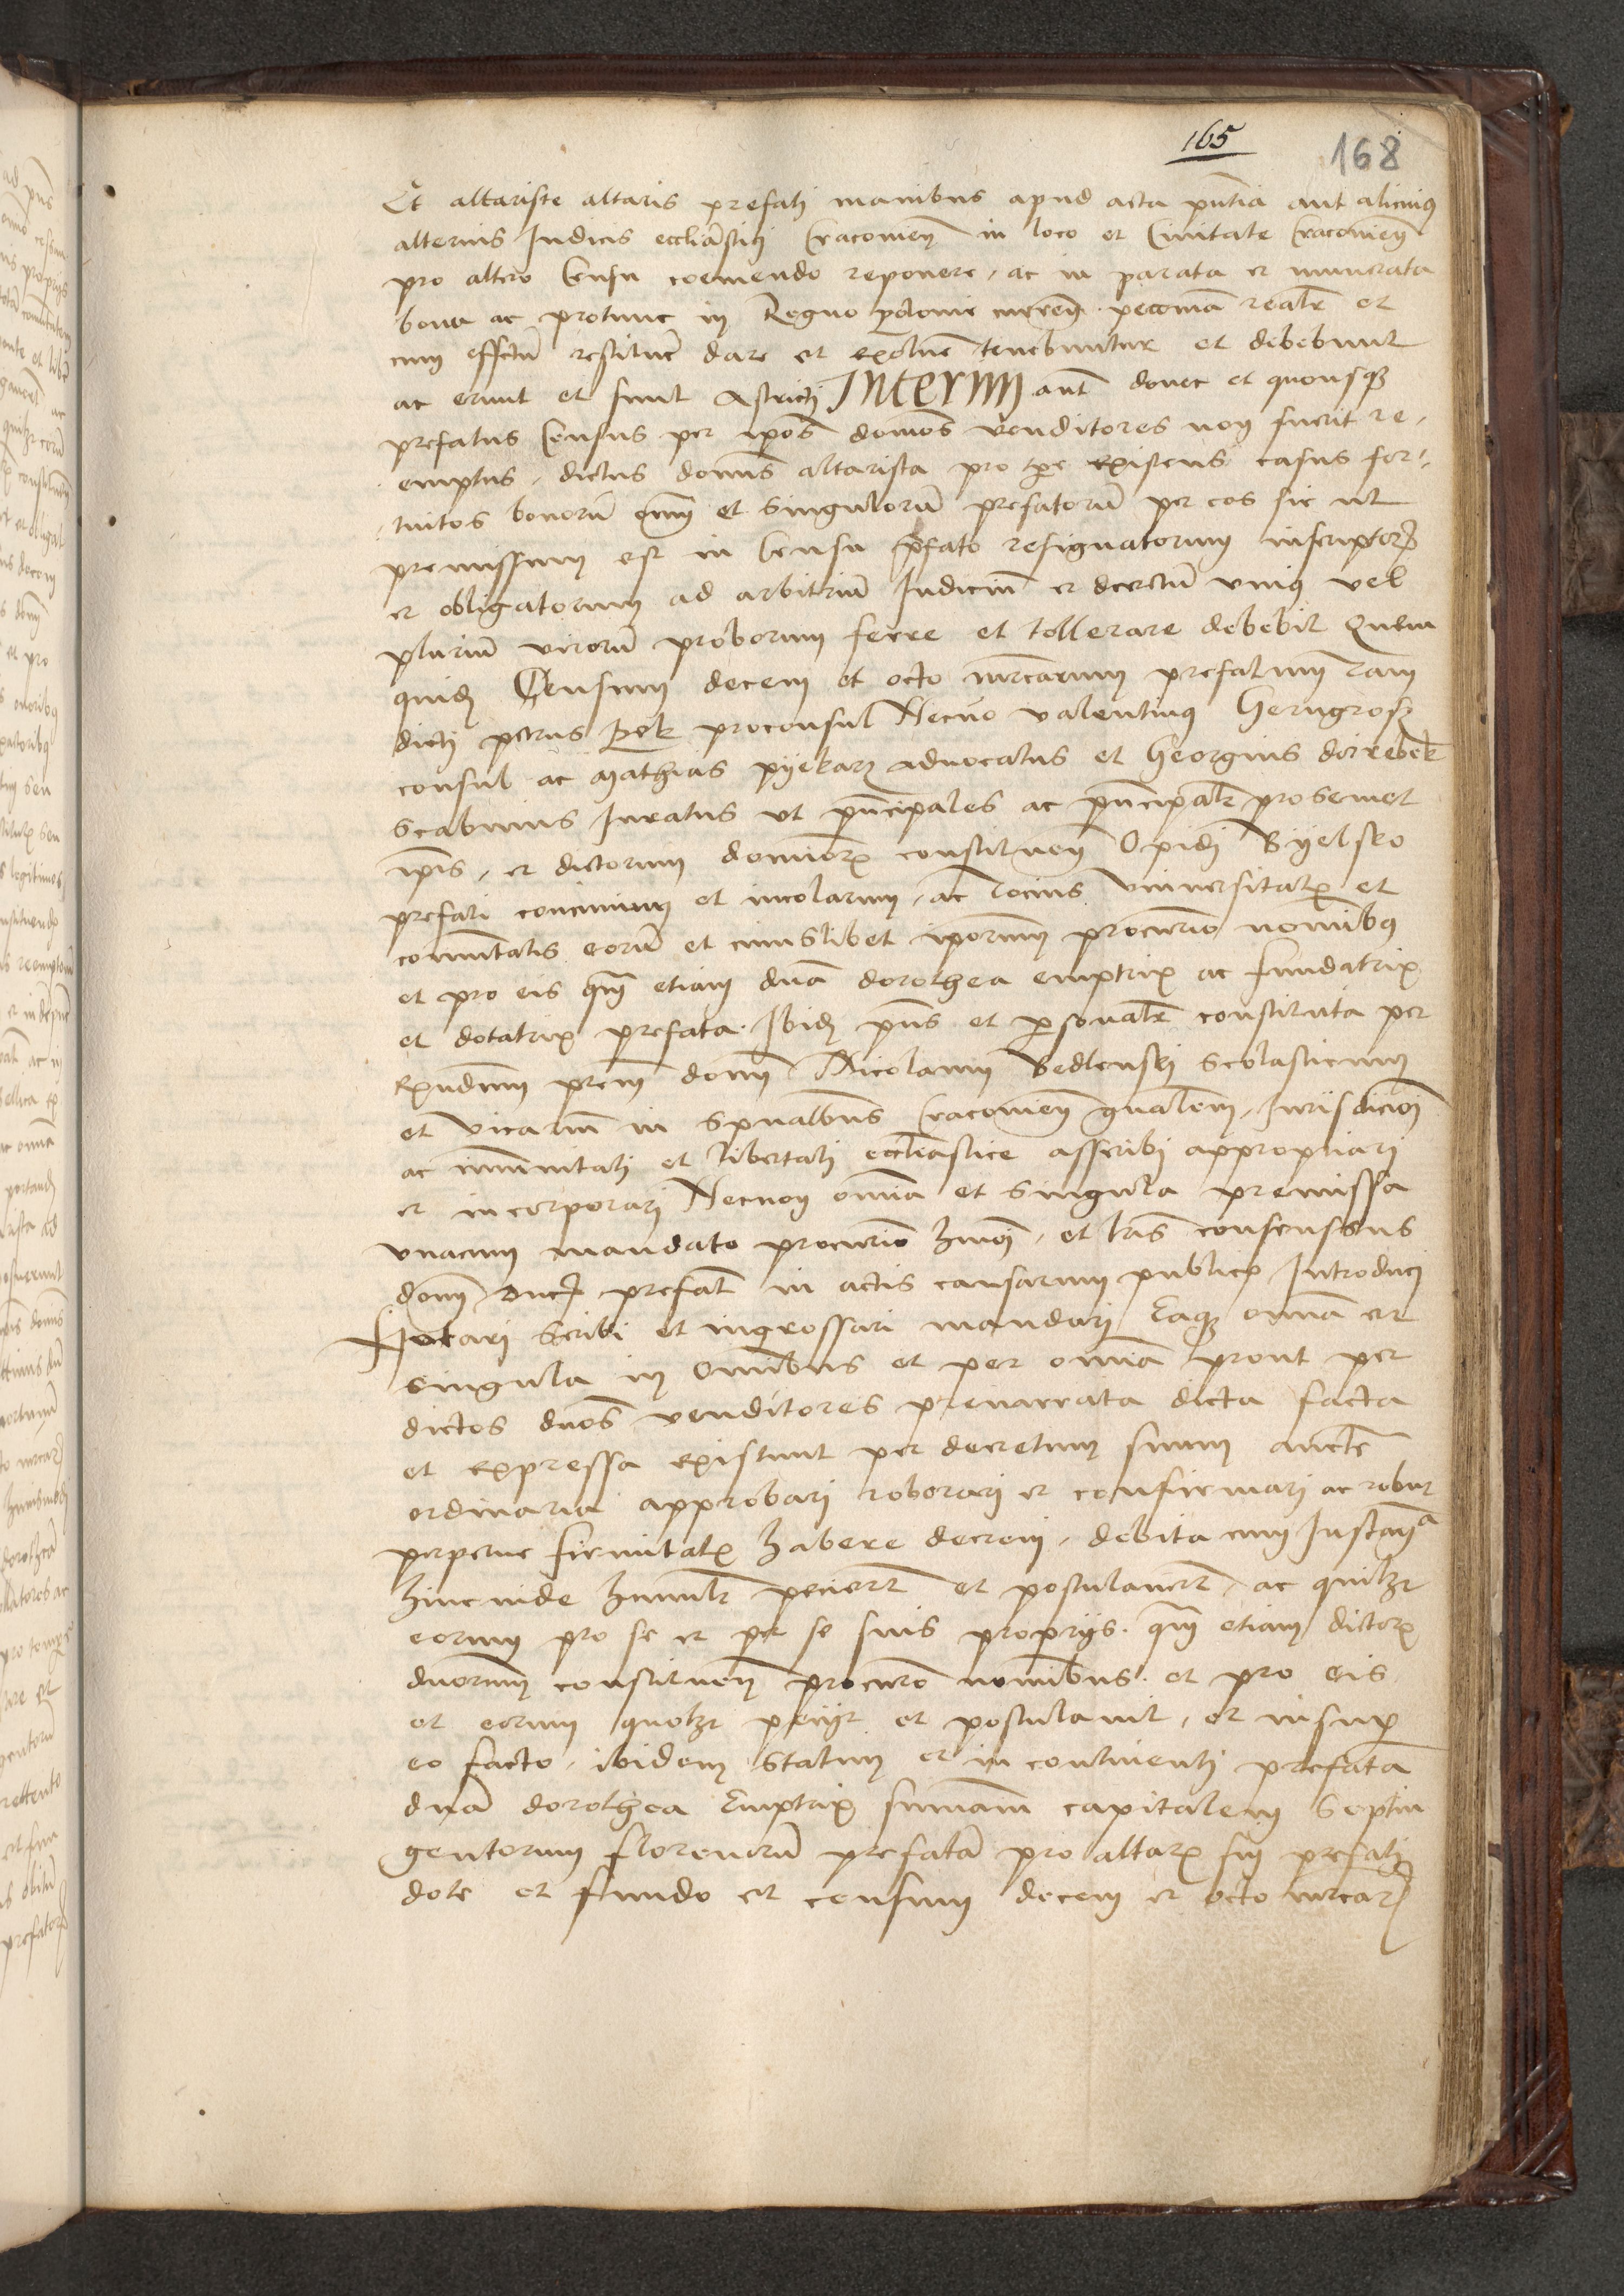 165
168
Et altariste altaris prefati manibus apud acta pñtia aut alicuiꝰ
alterius Iudicis eccliastici Cracovieñ in loco et Civitate Cracovieñ
pro altero Censu coemendo reponere, ac in parata et numerata
bona ac protunc in Regno polonie curreñ pecunia realr et
cum effectu restituere dare et exoluere tenebuntur et debebunt
ac erunt et sunt astricti Interim aut donec et quousqꝫ
prefatus Census per ipos dominos venditores non fuerit re,
emptus, dictus domīs altarista pro tpe existens casus for,
,tuitos bonorū omiū et singulorū prefatorū per eos sic ut
premissum est in Censu prefato resignatorum inscriptorꝫ
et obligatorum ad arbitriū Iudiciū et decretū vniꝰ vel
pluriū virorū proborum ferre et tollerare debebit Quem
quidē Censum decem et octo mrcarum prefatum tam
dicti petrus Bek proconsul Necno valentinꝰ Herngrosz
consul ac Mathias pyekarz advocatus et Georgius
scabinus Iuratus ut principales ac principalr pro semet
ipis, et dictorum dominorꝫ constitueñ Opidi Byelsko
prefati concivium et incolarum, ac tocius vniversitatꝫ et
comunitatis eorū et cuiuslibet iporum procurio nominibꝰ
et pro eis q̄m etiam dnā dorothea emptrix ac fundatrix
et dotatrix prefata. Ibidē pñs et personalr constituta per
Rxndum prem domū Nicolaum Bedlenski scolasticum
et vicariū in spualibus Cracovieñ gñalem, Iurisdicioni
ac imunitati et libertati eccliastice asscribi appropriari
et incorporari Necnon omia et singula premissa
vnacum mandato procurio hmōi, et lras consensus
domi ducis prefati in actis causarum publicꝫ Introduci
Notari scribi et ingrossari mandari Eaqꝫ omia et
singula in omibus et per omia prout per
dictos dnōs venditores prenarrata dicta facta
et expressa existunt per decretum suum aucte
ordinaria approbari roborari et confirmari ac robur
perpetue firmitatꝫ habere decreni, debita cum Instancia
hincinde humilr pecierūt et postulaverūt, ac quilibet
eorum pro se et per se suis proprijs. q̄m etiam dictorꝫ
dnorum constitueñ procurio nominibus. et pro eis
et eorum quolibet pecijt et postulavit, et insup
eo facto, ibidem statim et in continenti prefata
dnā dorothea Emptrix sumam capitalem Septin
gentorum florenorū prefatā pro altarꝫ sui prefati
dote et fundo et censum decem et octo mrcarꝫ